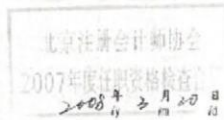 北京注册会计师协会
2007年度任职资格检查
2008年3月20日